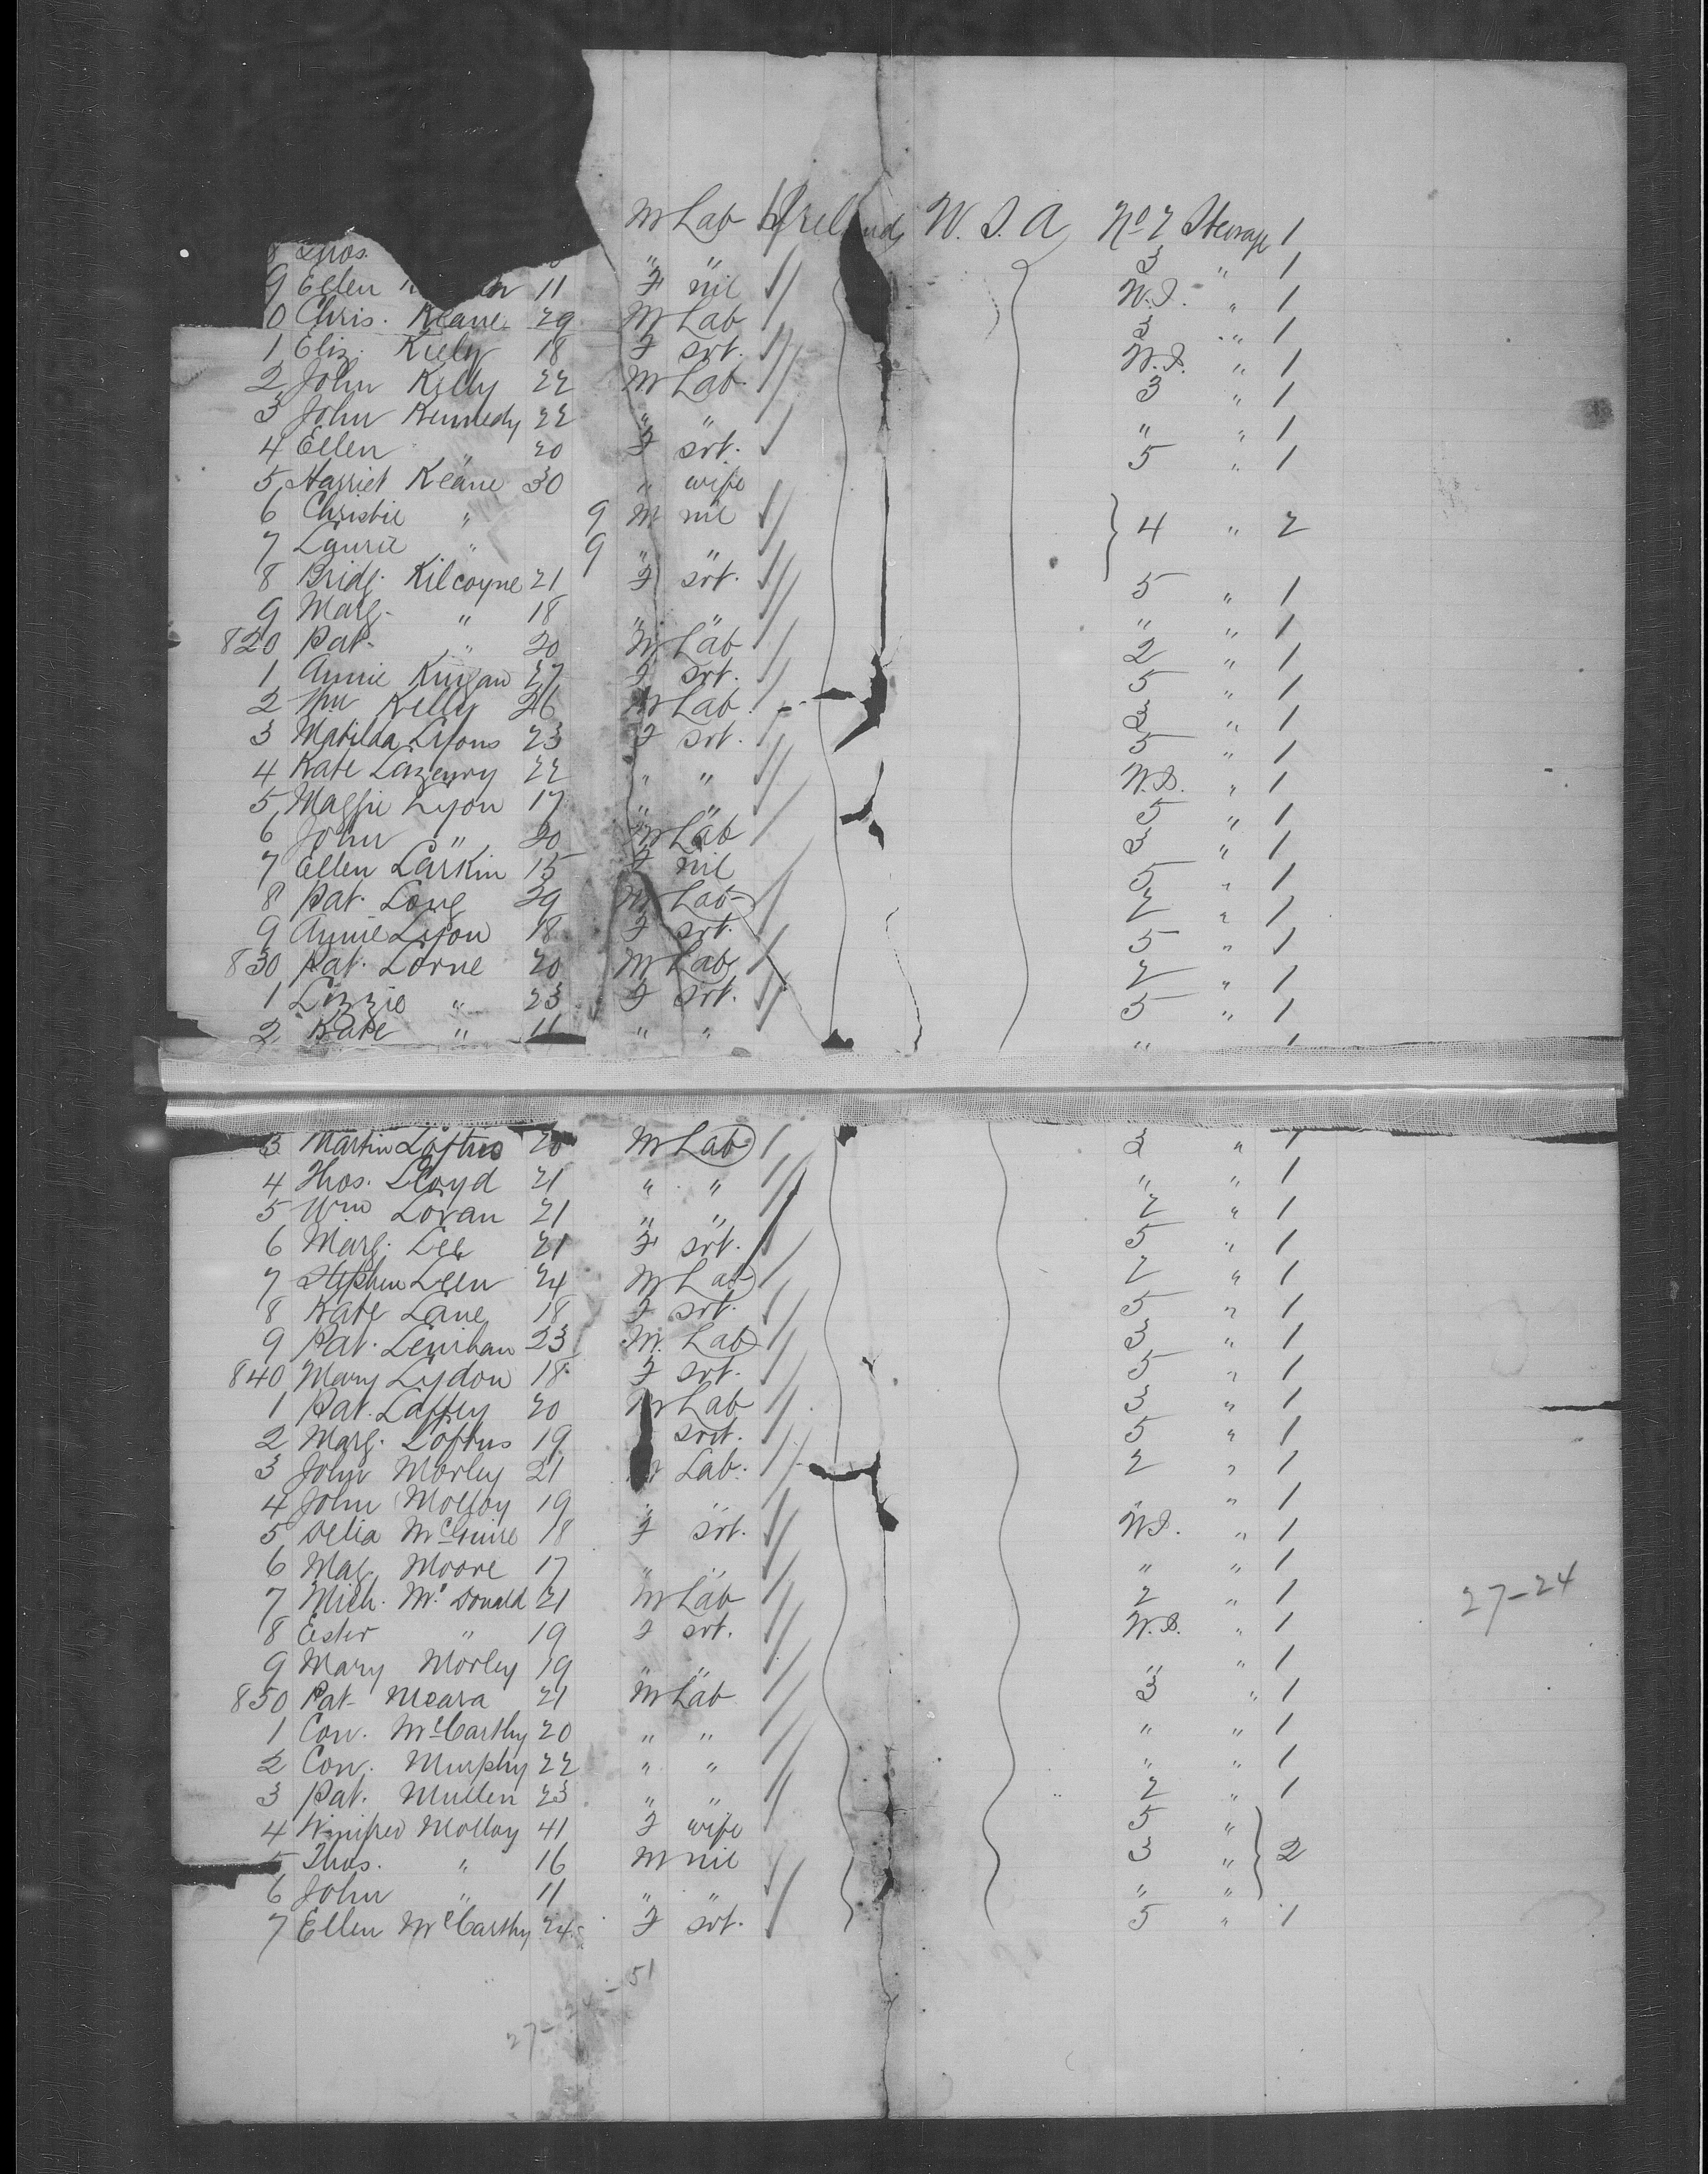 M Lab Ireland U.S.A No 2 Steerage 1
8 Thos. " " 3 " 1
9 Ellen 11 F nil W.S. " 1
0 Chris. Keane 29 M Lab 3 " 1
1 Eliz. Kiely 18 F srt. W.S. " 1
2 John Kelly 22 M Lab 3 " 1
3 John Kennedy 22 " " " " 1
4 Ellen " 20 F srt. 5 " 1
5 Harriet Keane 30 " wife
6 Christie " 9 M nil 4 " 2
7 Laurie " 9 " "
8 Bridg. Kilcoyne 21 F srt. 5 " 1
9 Marg. " 18 " " " " 1
820 Pat. " 20 M Lab 2 " 1
1 Annie 27 F srt. 5 " 1
2 Wm Kelly 26 M Lab 2 " 1
3 Matilda Lyons 23 F srt. 5 " 1
4 Kate 22 " " W.S. " 1
5 Maggie Lyon 17 " " 5 " 1
6 John " 20 M Lab 3 " 1
7 Ellen Larkin 15 F nil 5 " 1
8 Pat. Long 29 M Lab 2 " 1
9 Annie Lyon 18 F srt. 5 " 1
830 Pat. Lorne 20 M Lab 2 " 1
1 Lizzie " 23 F srt. 5 " 1
2 Kate " 11 " " " 1
3 Martin Loftus 20 M Lab 2 " 1
4 Thos. Lloyd 21 " " " " 1
5 Wm Loran 21 " " 2 " 1
6 Marg. Lee 21 F srt. 5 " 1
7 Stephen Leen 24 M Lab 2 " 1
8 Kate Lane 18 F srt. 5 " 1
9 Pat. Lenihan 23 M. Lab 3 " 1
840 Mary Lydon 18 F srt. 5 " 1
1 Pat. Laffey 20 M Lab 3 " 1
2 Marg. Loftus 19 srt. 5 " 1
3 John Morley 21 M Lab. 2 " 1
4 John Molloy 19 " " " " 1
5 Delia McGuire 18 F srt. W.S. " 1
6 Mag. Moore 17 " " " " 1
7 Mich. Mc Donald 21 M Lab 2 " 1 27-24
8 Ester " 19 F srt. W.S. " 1
9 Mary Morley 19 " " " " 1
850 Pat. Meara 21 M Lab 3 " 1
1 Con. McCarthy 20 " " " " 1
2 Con. Murphy 22 " " " " 1
3 Pat. Mullen 23 " " 2 " 1
4 Winifred Molloy 41 F wife 5 "
5 Thos. " 16 M nil 3 " 2
6 John " 11 " " " "
7 Ellen McCarthy 24 F srt. 5 " 1
27-24-51